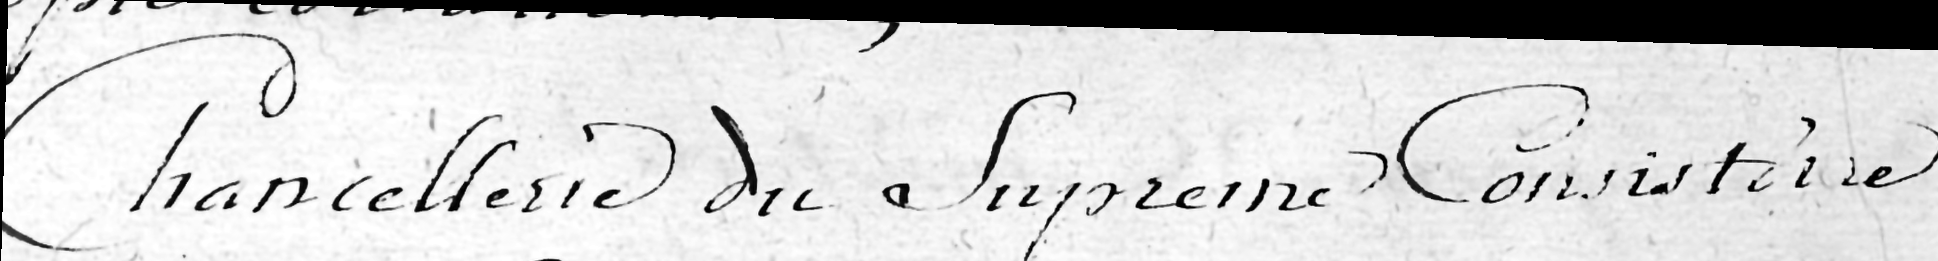 Chancellerie du Supreme Consistoire